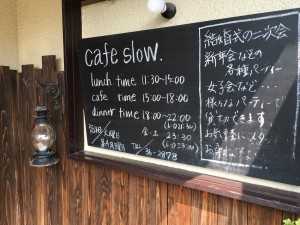 cafe slow.
lunch time 11:30~15:00
cafe time 15:00~18:00
dinner time 18:00~22:00
金・土 23:30
TEL 36-2878
結婚式の二次会
新年会などの
各種パーティー
女子会など・・・
様々なパーティーで
お気軽にスタッフ